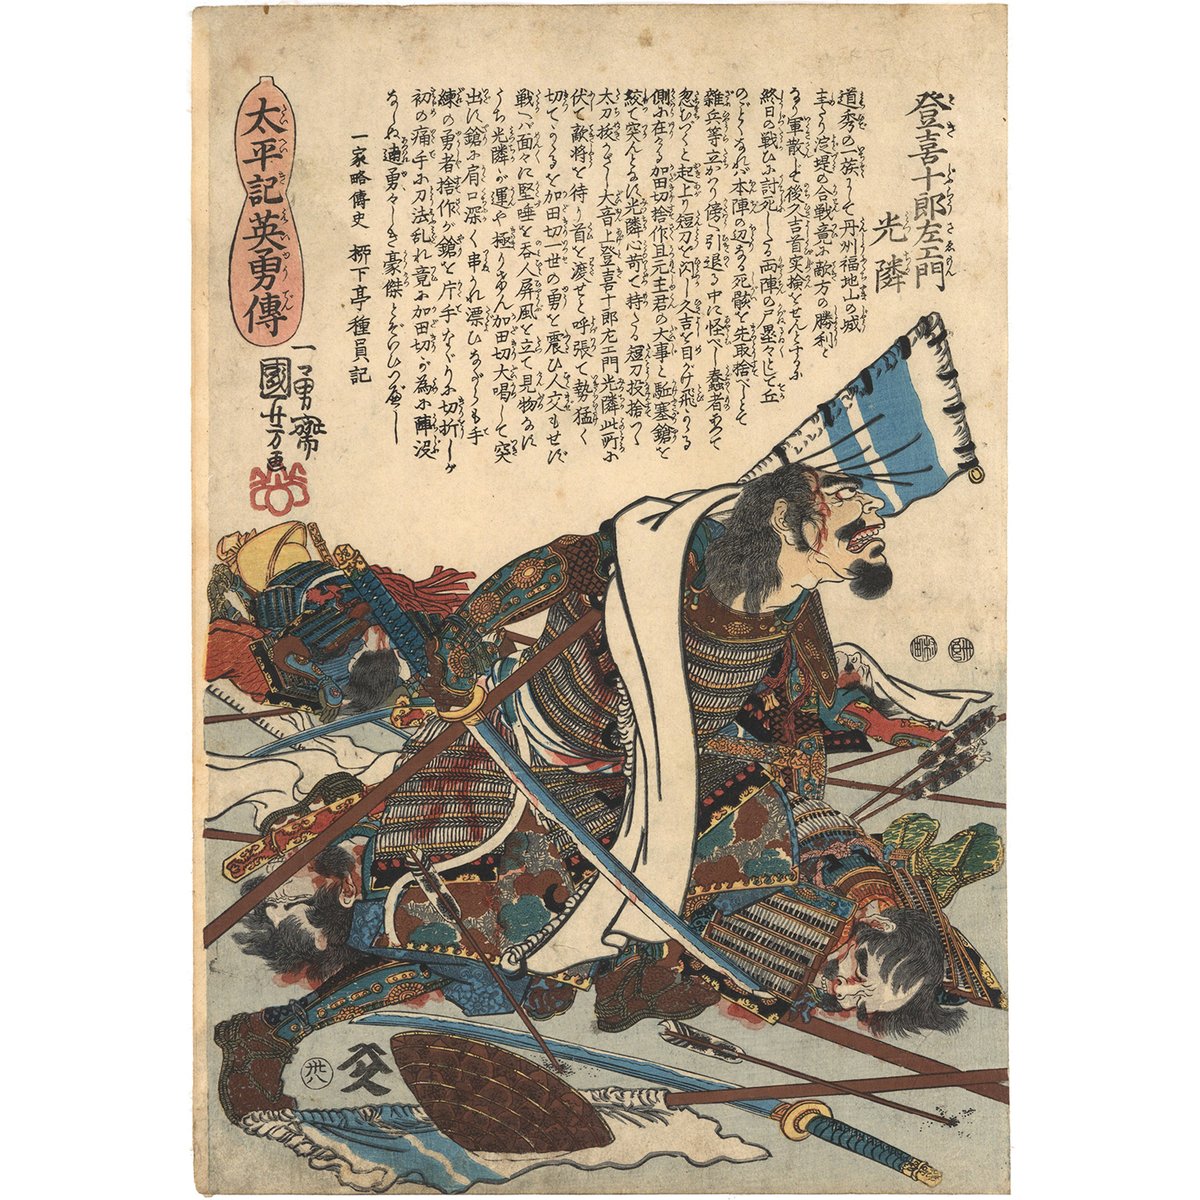 登喜十郎左エ門
光隣
道秀の一族にて丹州福地山の城
主たり淀堤の合戦竟に敵方の勝利と
なり軍散じて後久吉首実検をせんとするに
終日の戦ひに討死したる両陣の尸塁々として丘
のごとくなれバ本陣の辺なる死骸を先取捨べしとて
雑兵等立かゝり傍へ引退る中に怪べし蠢者あつて
忍びやかに起上り短刀を閃し久吉を目がけ飛かゝる
側に在あふ加田切捨作且元主君の大事と駈塞鎗を
絞て突んとなすに光隣心苛て持たる短刀投捨つゝ
太刀抜かざし大音上登喜十郎左エ門光隣此所に
伏て敵将を待り首を渡せと呼張て勢猛く
切てかゝるを加田切一世の勇を震ひ人交もせず
戦へバ面々に堅唾を呑人屏風を立て見物なす
うち光隣が運や極りけん加田切大喝して突
出に鎗に肩口深く串ぬかれ漂ひながらも手
練の勇者捨作が鎗を片手なぐりに切折しが
初の痛手に刀法乱れ竟に加田切が為に陣没
なしぬ 勇々しき豪傑とぞいひつべし
一家略傳史 柳下亭種員記
太平記英勇傳
一勇齋
國芳画
卅八